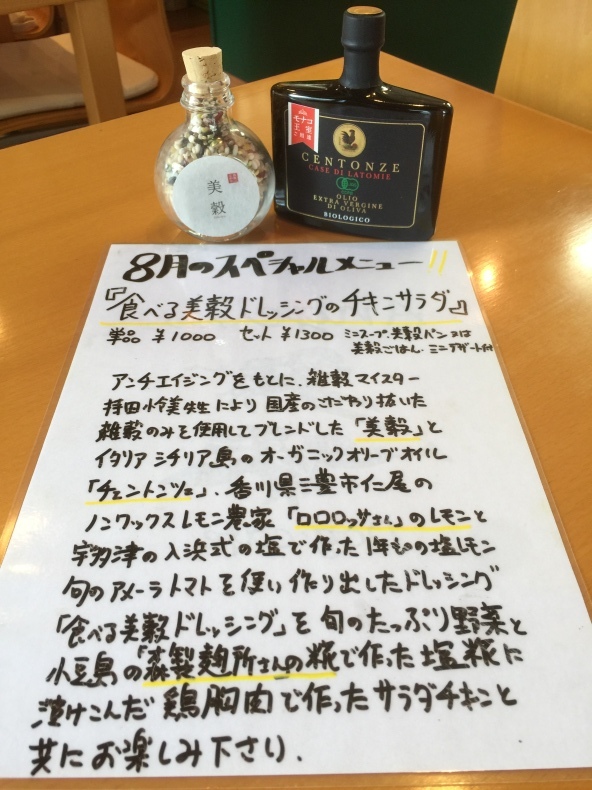 美穀
モナコ
王室
CENTONZE
CASE DI LATOMIE
OLIO
EXTRA VERGINE
DI OLIVA
BIOLOGICO
8月のスペシャルメニュー!!
『食べる美穀ドレッシングのチキンサラダ』
単品 ¥1000 セット ¥1300 ミニスープ・美穀パン又は
美穀ごはん・ミニデザート付
アンチエイジングをもとに、雑穀マイスター
持田怜美先生により国産のこだわり抜いた
雑穀のみを使用してブレンドした「美穀」と
イタリア シチリア島のオーガニックオリーブオイル
「チェントンツェ」、香川県三豊市仁尾の
ノンワックスレモン農家「ロロロッサさん」のレモンと
宇多津の入浜式の塩で作った1年もの塩レモン
旬のアメーラトマトを使い作り出したドレッシング
「食べる美穀ドレッシング」を旬のたっぷり野菜と
小豆島の「森製麹所さんの糀で作った塩糀に
漬けこんだ鶏胸肉で作ったサラダチキンと
共にお楽しみ下さい.